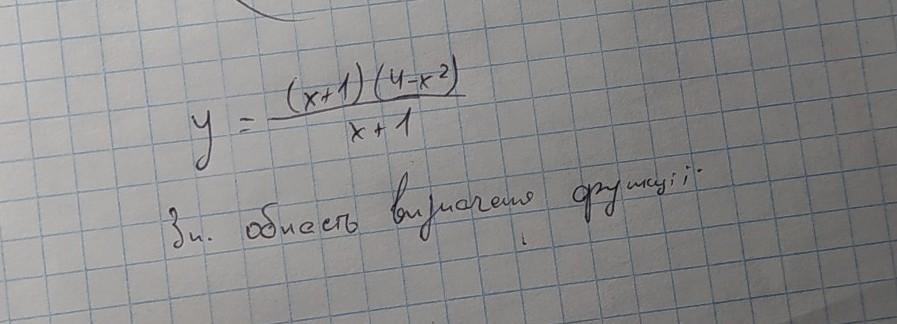 y = (x+1)(4-x²) / x+1
Зн. область визначення функції.